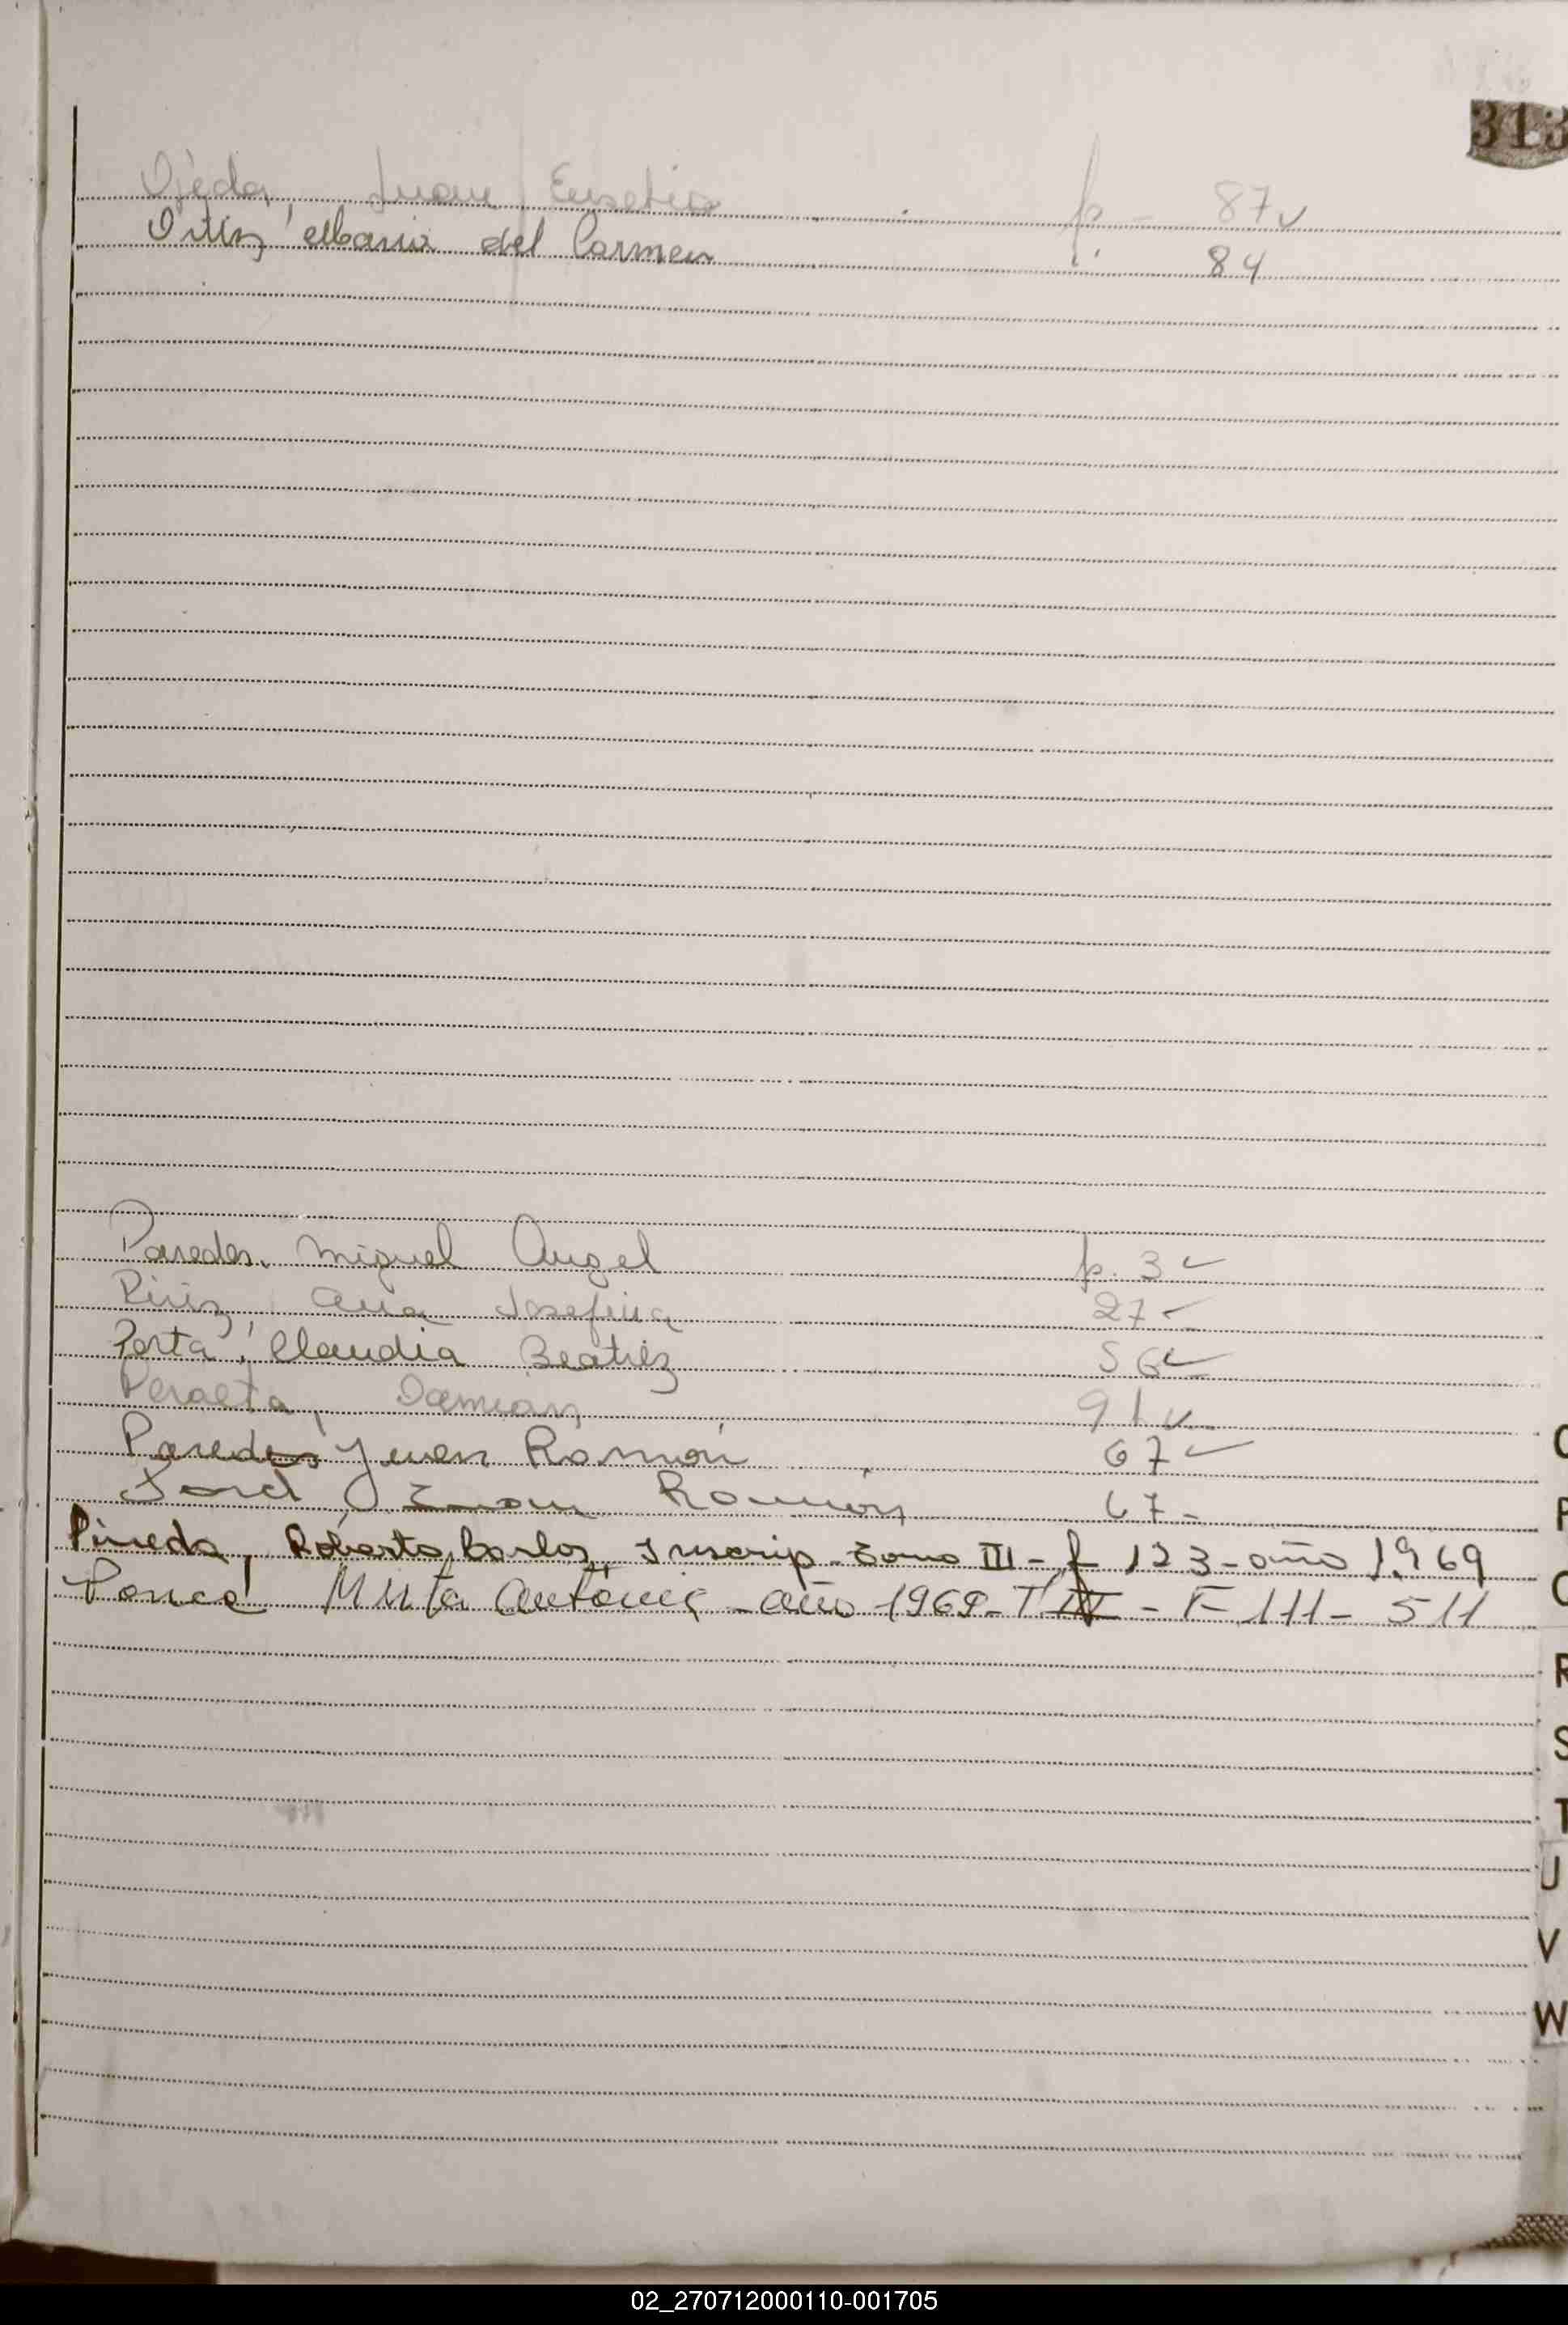 313
Ojeda, Juan Eusebio f - 87v
Ortíz, María del Carmen " 84
Paredes, Miguel Angel f. 3
Piriz, Ana Josefina 27
Porta, Claudia Beatriz 56
Peralta, Damian 91
Paredes Juan Ramón 67
Juan Ramón 67
Pineda, Roberto Carlos, Inscrip. Tomo III - f 123 - año 1969
Ponce Antonia - año 1969 - T IV - F 111 - 511
O
P
Q
R
S
T
U
V
W
02_270712000110-001705